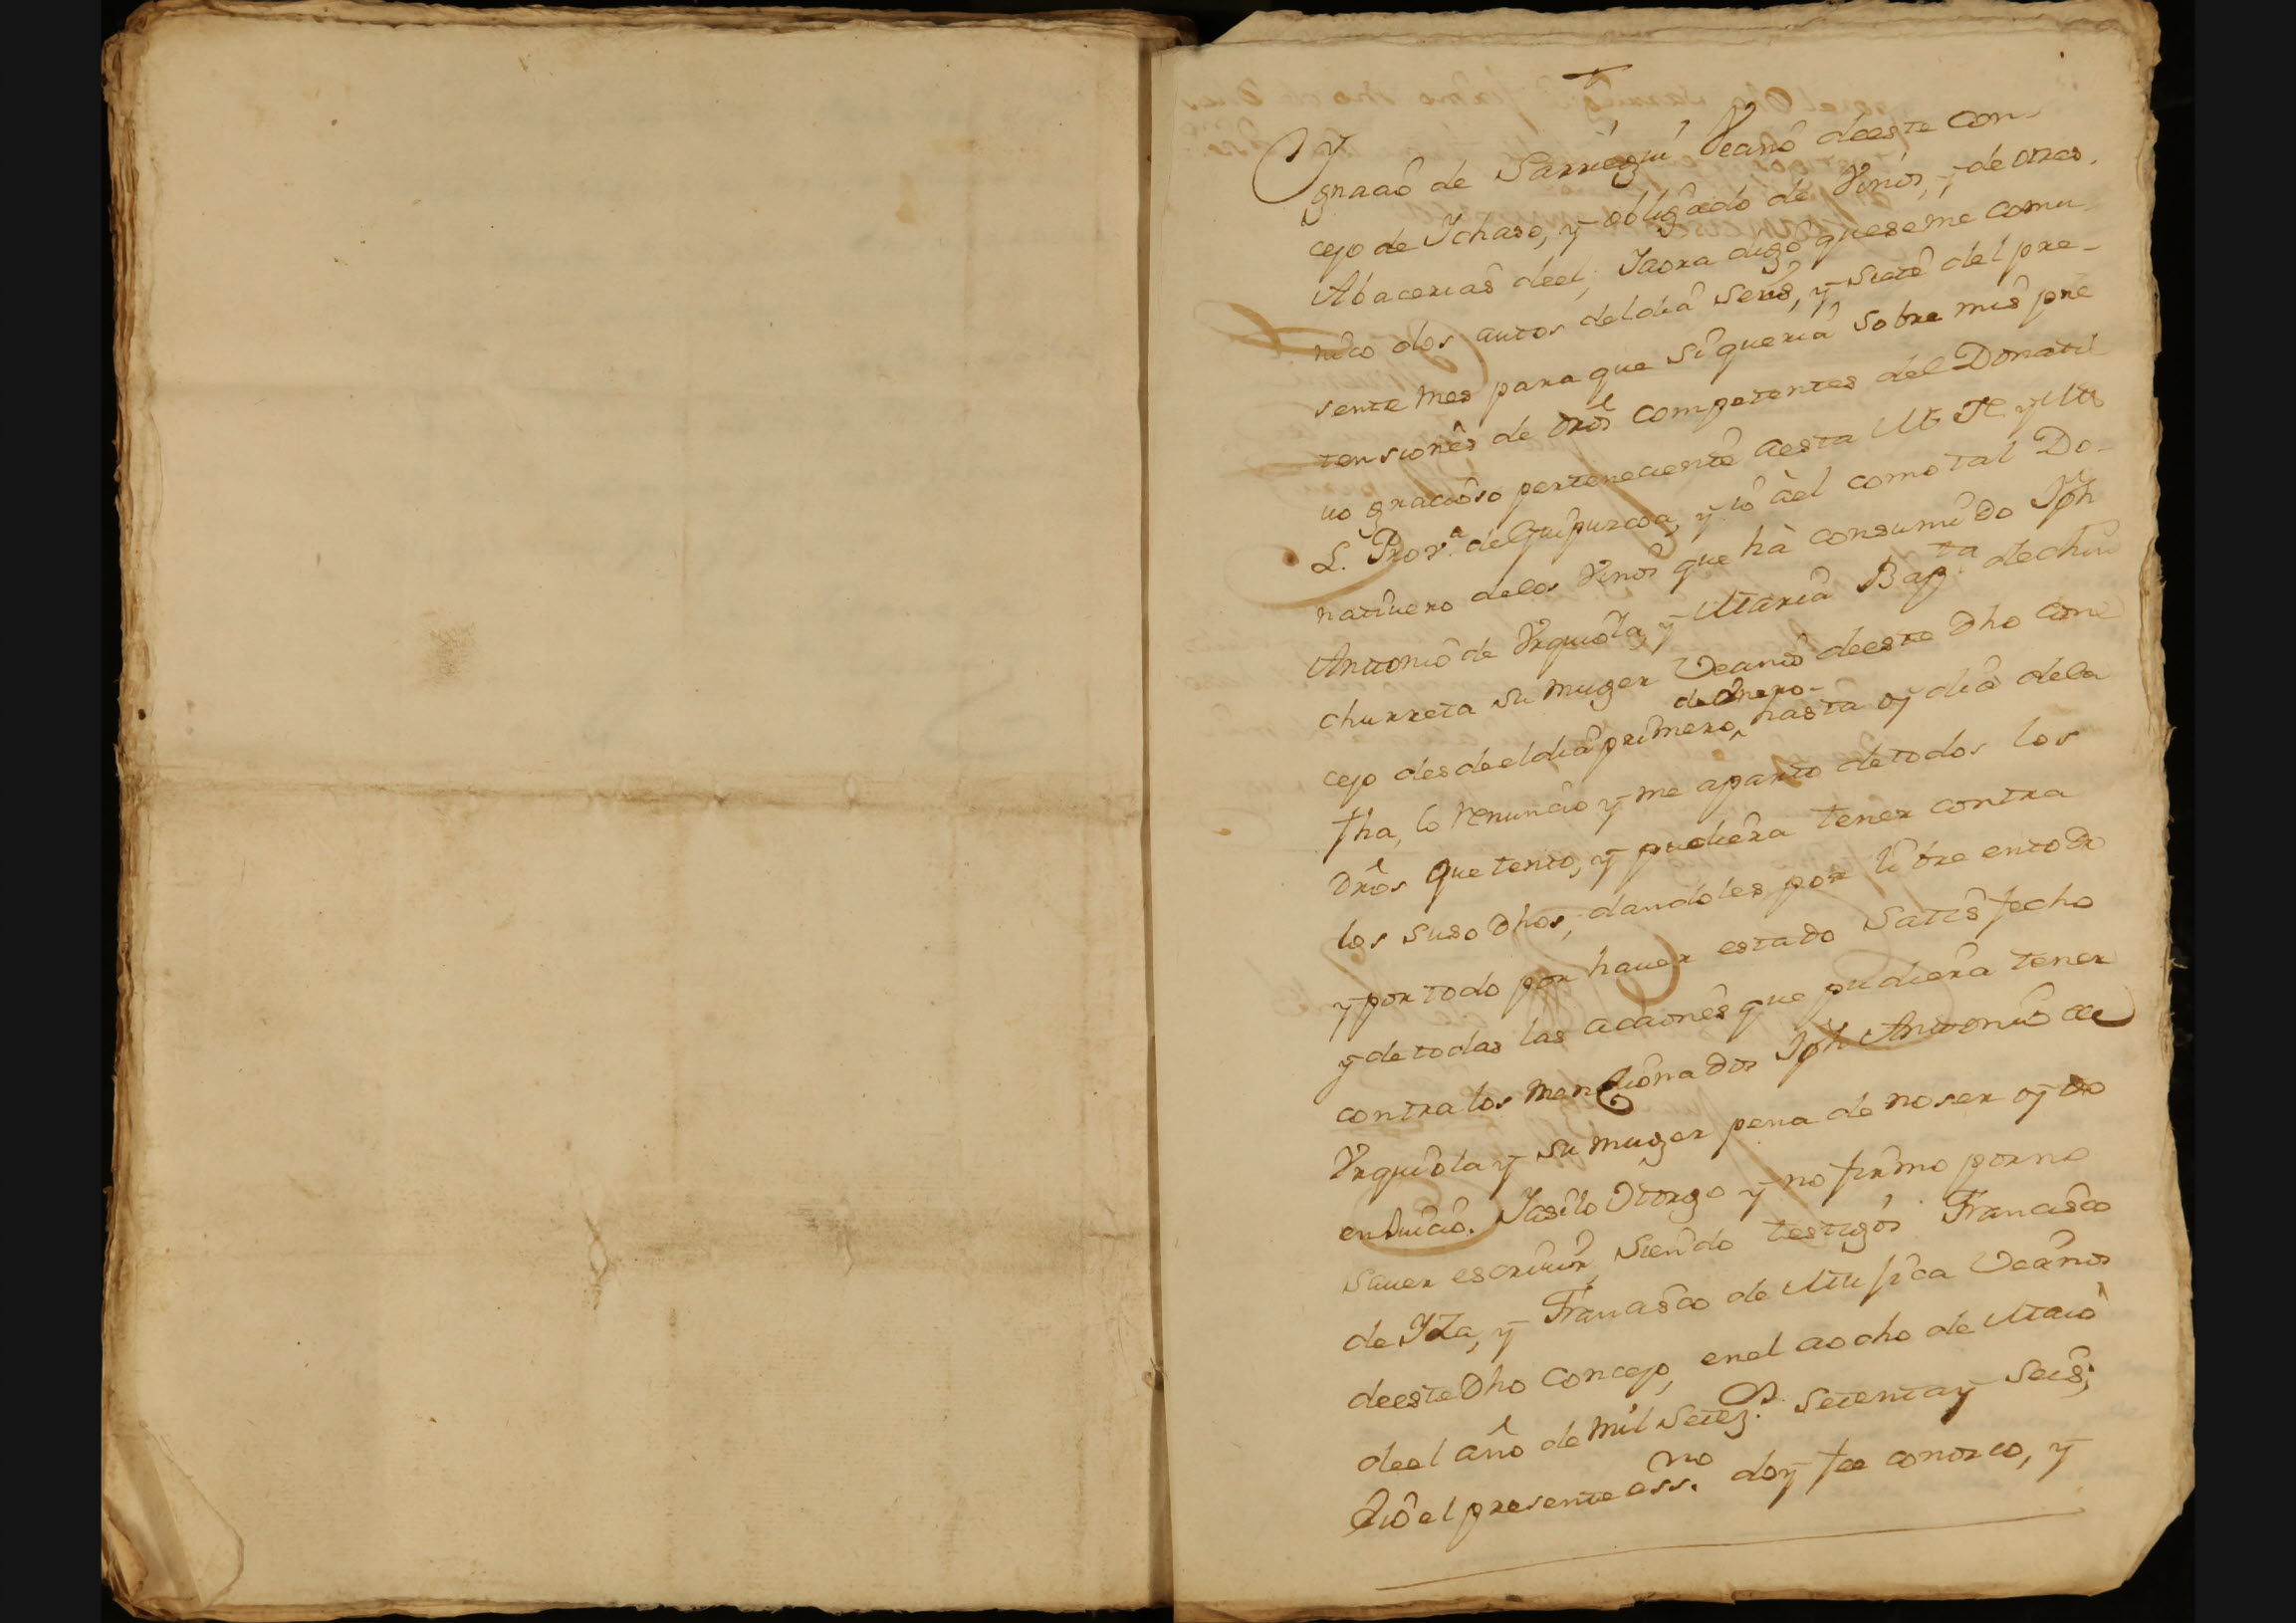 Ygnacio de Sarriegui Vecino deeste Con-
cejo de Ychaso, y obligado de Vinos, y de otras
Abacerias deel, Iaora digo quese me comu
nico dos autos deldia seis, y siete del pre-
sente mes para que siqueria sobre mis pre
tensiones de dros competentes del Donati
uo gracioso perteneciente aesta M. N. y M.
L. Prov.a de Guipuzcoa, y io àel como tal Do-
natiuero delos Vinos que hà consumido Jph
Antonio de Vrquiola, y Maria Bap.ta dechin
churreta su muger Vecinos deeste dho con
cejo desde eldia primero de Enero hasta oy dia dela
fha, lo renuncio y me aparto detodos los
Dros que tento, y pudiera tener contra
los suso dhos, dandoles por libre entodo
y por todo por hauer estado Satisfecho
y de todas las acciones que pudiera tener
contra los mencionados Jph Antonio de
Vrquiola y su muger pena de no ser oydo
en Juicio. Iasilo Otorgo y no firmo por no
sauer escriuir, siendo testigos Francisco
de Yza, y Francisco de Mufica Vecinos
deeste dho Concejo, enel a ocho de Maio
deel año de mil setez.s setenta y seis;
Eio el presente ess.no doy fee conozco, y